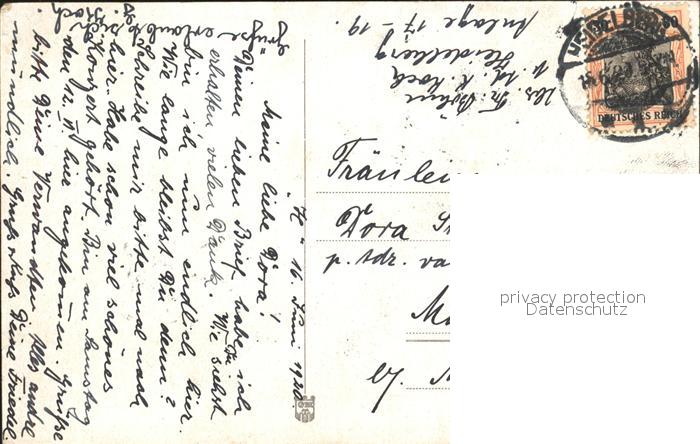 H. 16. Juni 1920.
Meine liebe Dora!
Deinen lieben Brief habe ich
erhalten vielen Dank. Wie Du siehst
bin ich nun endlich hier.
Wie lange bleibst Du denn?
Schreibe mir bitte mal nach
hier. Habe schon viel schönes
Konzert gehört. Bin am Samstag
den 12. VI. hier angekommen. Grüße
bitte Deine Verwandten. Alles andre
mündlich. Gruß Kuß Deine Friedel
Grüße
Abs. Fr. Böhm
b. Ad. K. Koch
Heidelberg
Anlage 17-19.
HEIDELBERG
DEUTSCHES REICH
Fräulei
Dora
p. Adr.
privacy protection
Datenschutz